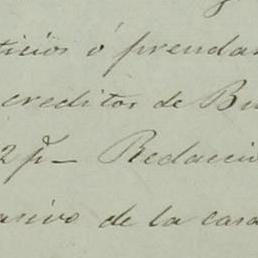 ticios ó prendar
creditos de Bu
2 p̃ - Redacció
usivo de la casa